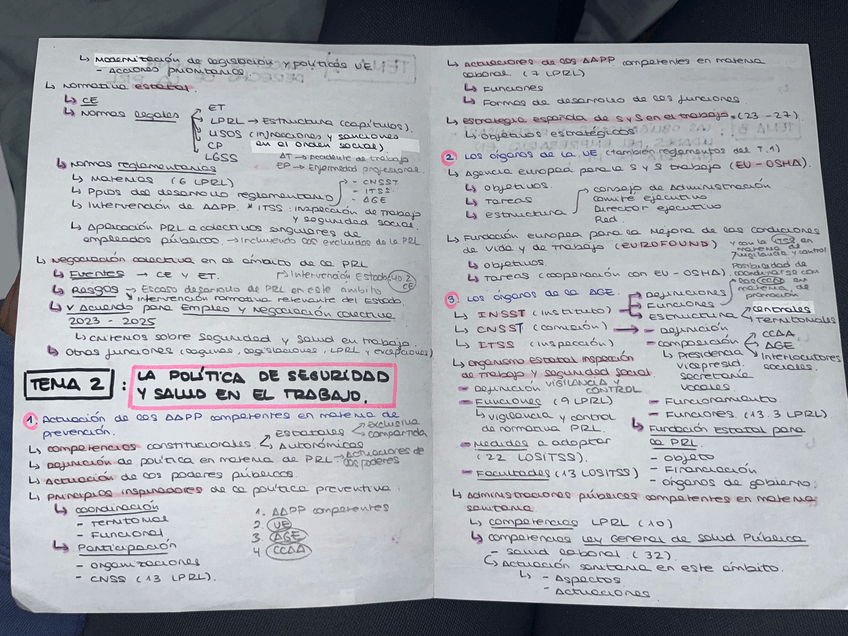 ↳ Modernización de legislación y políticas UE
- Acciones prioritarias
↳ Normativa estatal.
↳ CE
↳ Normas legales
ET
LPRL → Estructura (capítulos).
LISOS (infracciones y sanciones
en el orden social).
CP
LGSS
AT → Accidente de trabajo
EP → Enfermedad profesional.
↳ Normas reglamentarias
↳ Materias (6 LPRL)
↳ Ppios del desarrollo reglamentario
↳ Intervención de AAPP.
- CNSST
- ITSS
- AGE
* ITSS: Inspección de Trabajo
y seguridad social.
↳ Aplicación PRL a colectivos singulares de
empleados públicos. → Incluyendo los excluidos de la PRL
↳ Negociación colectiva en el ámbito de la PRL
↳ Fuentes → CE y ET.
↳ Intervención Estado 40.2
CE
↳ Rasgos → Escaso desarrollo de PRL en este ámbito
↘ Intervención normativa relevante del Estado.
↳ V Acuerdo para Empleo y Negociación colectiva
2023 - 2025
↳ Criterios sobre seguridad y salud en trabajo.
↳ Otras funciones (lagunas, legislaciones, LPRL y excepciones)
TEMA 2 : LA POLÍTICA DE SEGURIDAD
Y SALUD EN EL TRABAJO.
1. Actuación de las AAPP competentes en materia de
prevención.
↳ Competencias constitucionales
Estatales
Exclusiva
compartida
Autonómicas
↳ Definición de política en materia de PRL → Actuaciones de
los poderes
↳ Actuación de los poderes públicos.
↳ Principios inspiradores de la política preventiva.
↳ Coordinación
- Territorial
- Funcional
↳ Participación
- Organizaciones
- CNSS (13 LPRL).
1. AAPP competentes
2. UE
3. AGE
4 CCAA
↳ Actuaciones de las AAPP competentes en materia
laboral (7 LPRL)
↳ Funciones
↳ Formas de desarrollo de las funciones.
↳ Estrategia española de S y S en el trabajo (23 - 27)
↳ Objetivos estratégicos
2. Los órganos de la UE (también reglamentos del T.1)
↳ Agencia europea para la S y S trabajo (EU - OSHA).
↳ Objetivos.
↳ Tareas
↳ Estructura
Consejo de Administración
Comité ejecutivo
Director ejecutivo
Red.
↳ Fundación europea para la Mejora de las condiciones
de vida y de trabajo (EUROFOUND)
↳ Objetivos
↳ Tareas (cooperación con EU - OSHA).
y con la ITSS en
materia de
vigilancia y control
Posibilidad de
coordinarse con
las CCAA en
materia de
promoción
3. Los órganos de la AGE.
↳ INSST (instituto)
Definiciones
Funciones
Estructura
Centrales
Territoriales
↳ CNSST (comisión) → - Definición
- composición
CCAA
AGE
Interlocutores
sociales.
↳ Presidencia
vicepresid.
secretaría
vocales
↳ ITSS (inspección)
↳ Organismo estatal inspección
de trabajo y seguridad social
- Definición VIGILANCIA Y
CONTROL
- Funciones (9 LPRL)
↳ vigilancia y control
de normativa PRL.
- Medidas a adoptar
(22 LOSITSS).
- Facultades (13 LOSITSS)
- Funcionamiento
- Funciones (13.3 LPRL)
↳ Fundación Estatal para
la PRL.
- Objeto
- Financiación
- órganos de gobierno.
↳ Administraciones públicas competentes en materia
sanitaria
↳ Competencias LPRL (10)
↳ Competencias Ley General de Salud Pública
- Salud laboral (32)
↳ Actuación sanitaria en este ámbito.
↳ - Aspectos
- Actuaciones